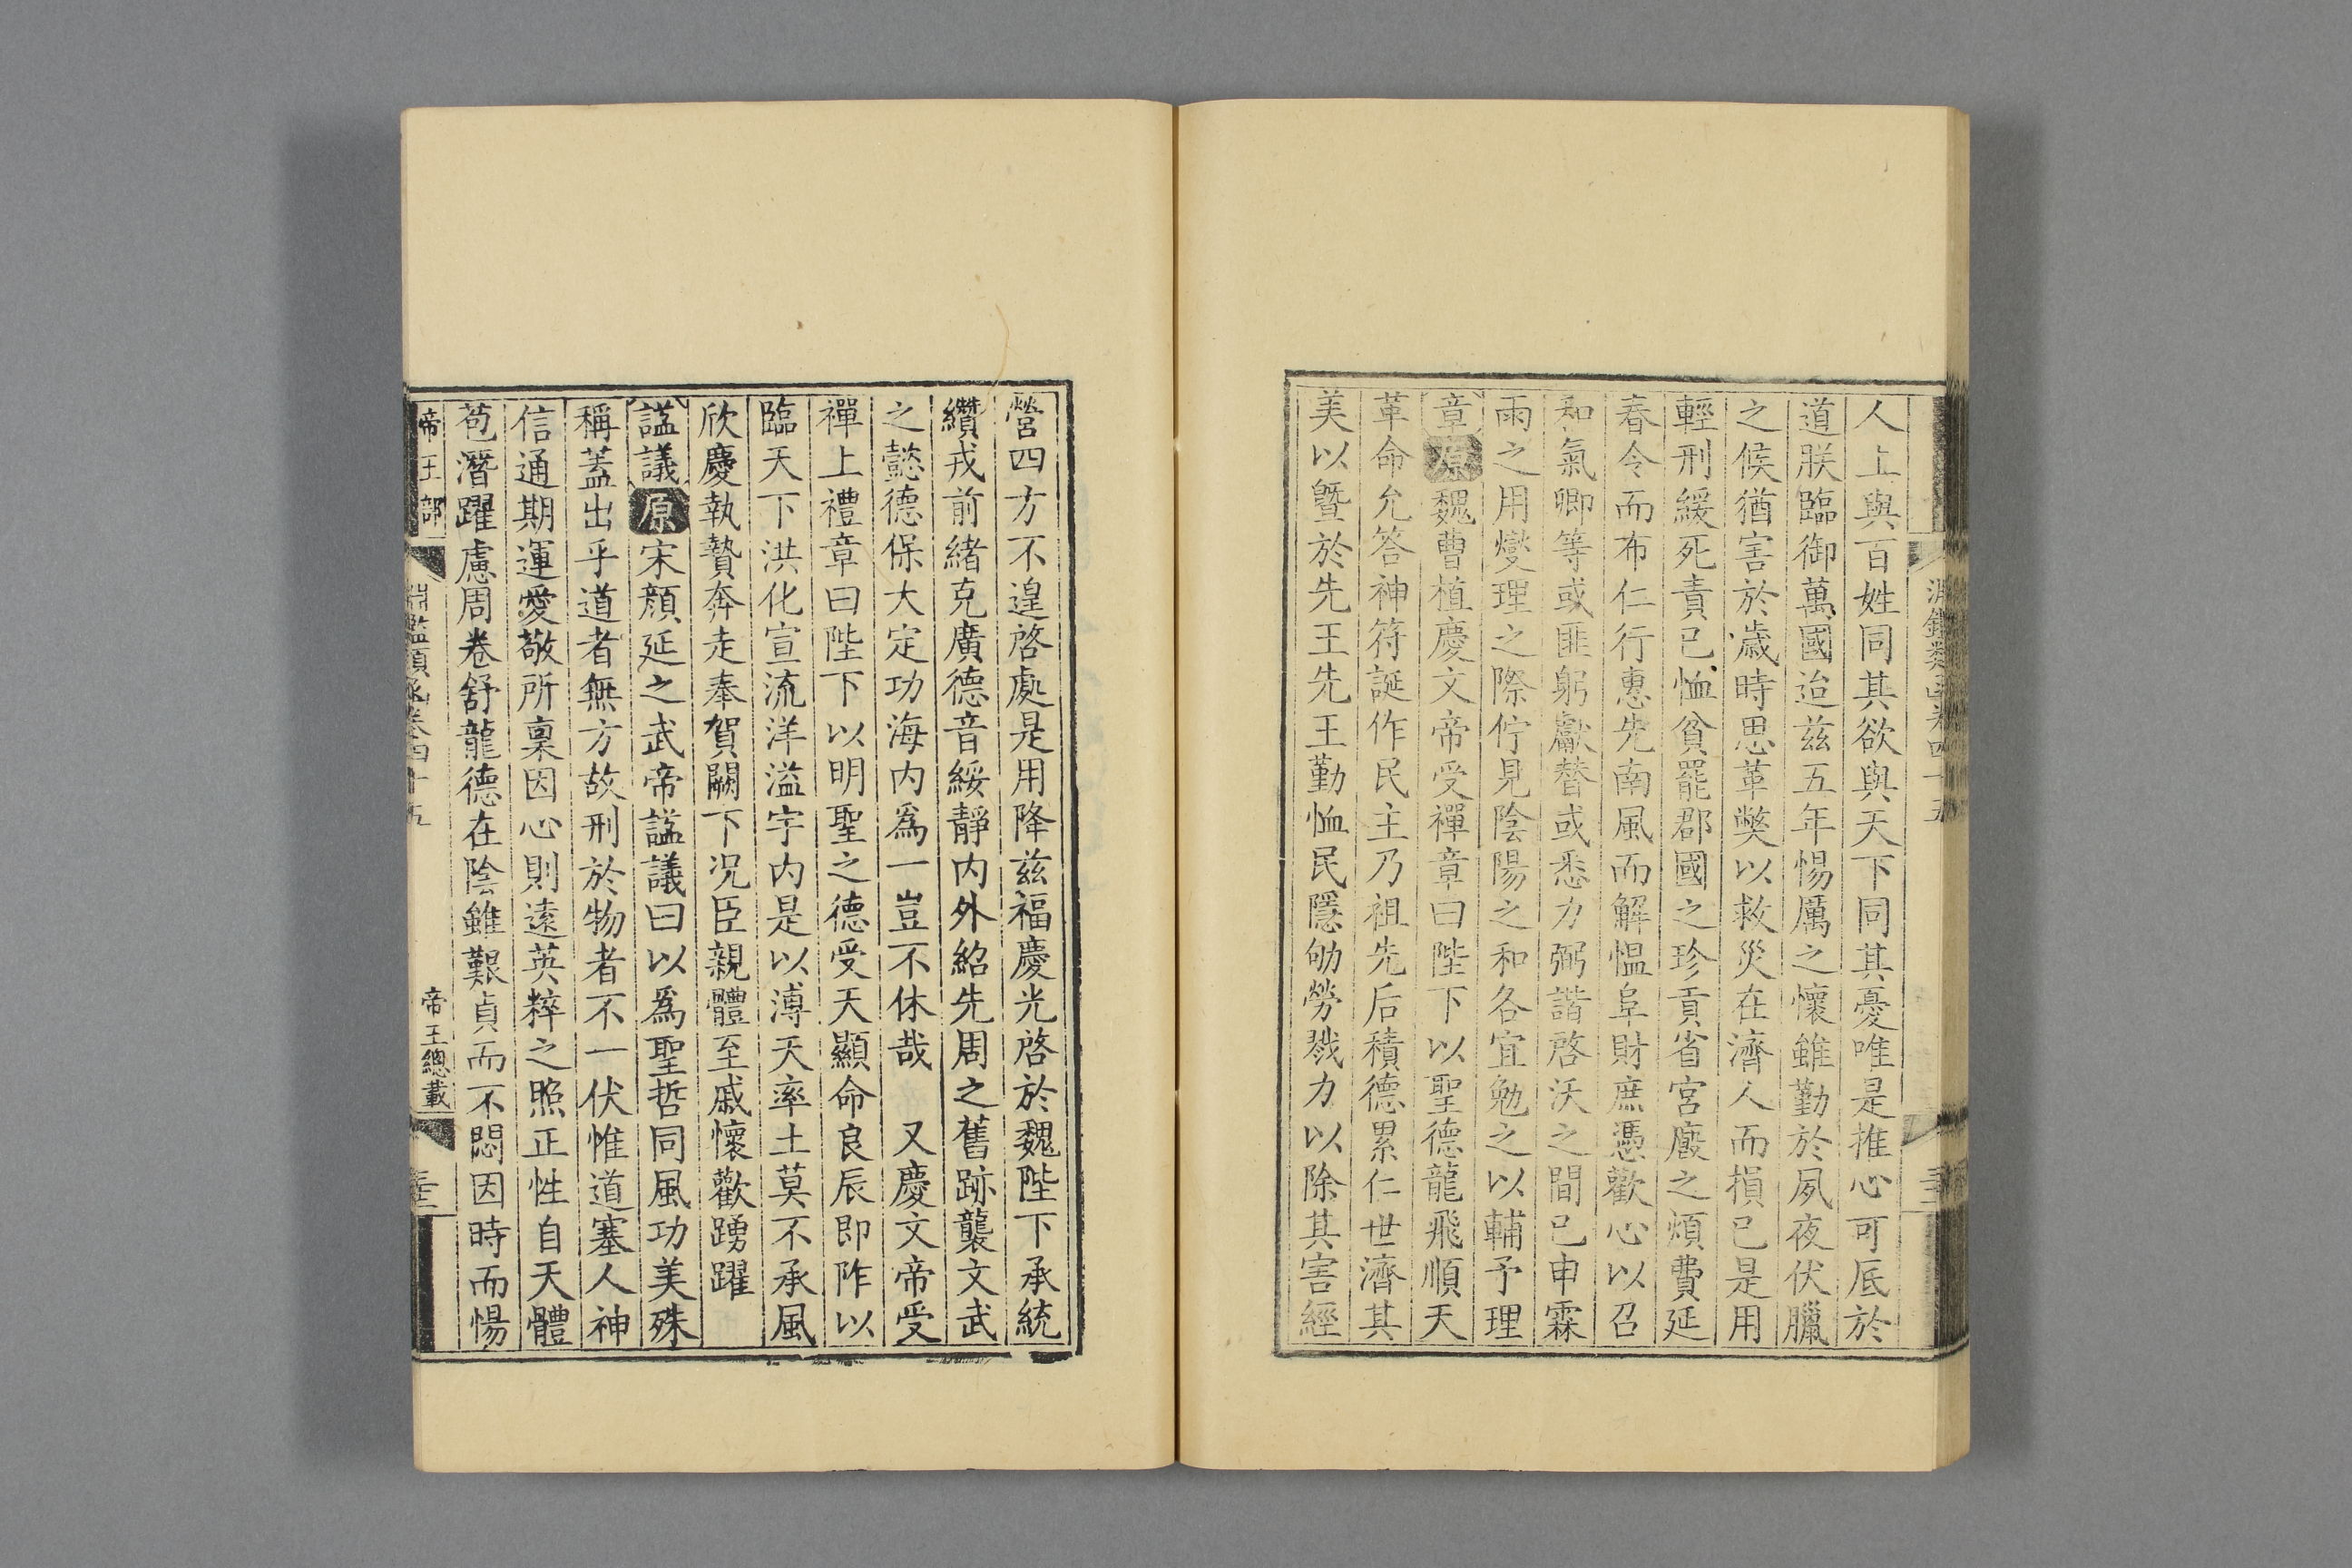 人上與百姓同其欲與天下同其憂唯是推心可底於
道朕臨御萬國迨茲五年惕厲之懷雖勤於夙夜伏臘
之候猶害於歲時思革獘以救災在濟人而損己是用
輕刑緩死責己恤貧罷郡國之珍貢省宮廄之煩費延
春令而布仁行惠先南風而解慍阜財庶憑歡心以召
和氣卿等或匪躬獻替或悉力弼諧啓沃之間已申霖
雨之用燮理之際佇見陰陽之和各宜勉之以輔予理
章原魏曹植慶文帝受禪章曰陛下以聖德龍飛順天
革命允答神符誕作民主乃祖先后積德累仁世濟其
美以曁於先王先王勤恤民隱劬勞戮力以除其害經
營四方不遑啓處是用降茲福慶光啓於魏陛下承統
纘戎前緒克廣德音綏靜内外紹先周之舊跡襲文武
之懿德保大定功海内爲一豈不休哉　又慶文帝受
禪上禮章曰陛下以明聖之德受天顯命良辰即阼以
臨天下洪化宣流洋溢宇内是以溥天率土莫不承風
欣慶執贄奔走奉賀闕下况臣親體至戚懷歡踴躍
諡議原宋顔延之武帝諡議曰以爲聖哲同風功美殊
稱蓋出乎道者無方故刑於物者不一伏惟道塞人神
信通期運愛敬所稟因心則遠英粹之照正性自天體
苞潛躍慮周卷舒龍德在陰雖艱貞而不悶因時而惕
帝王部　淵鑑類函卷四十五　帝王總載